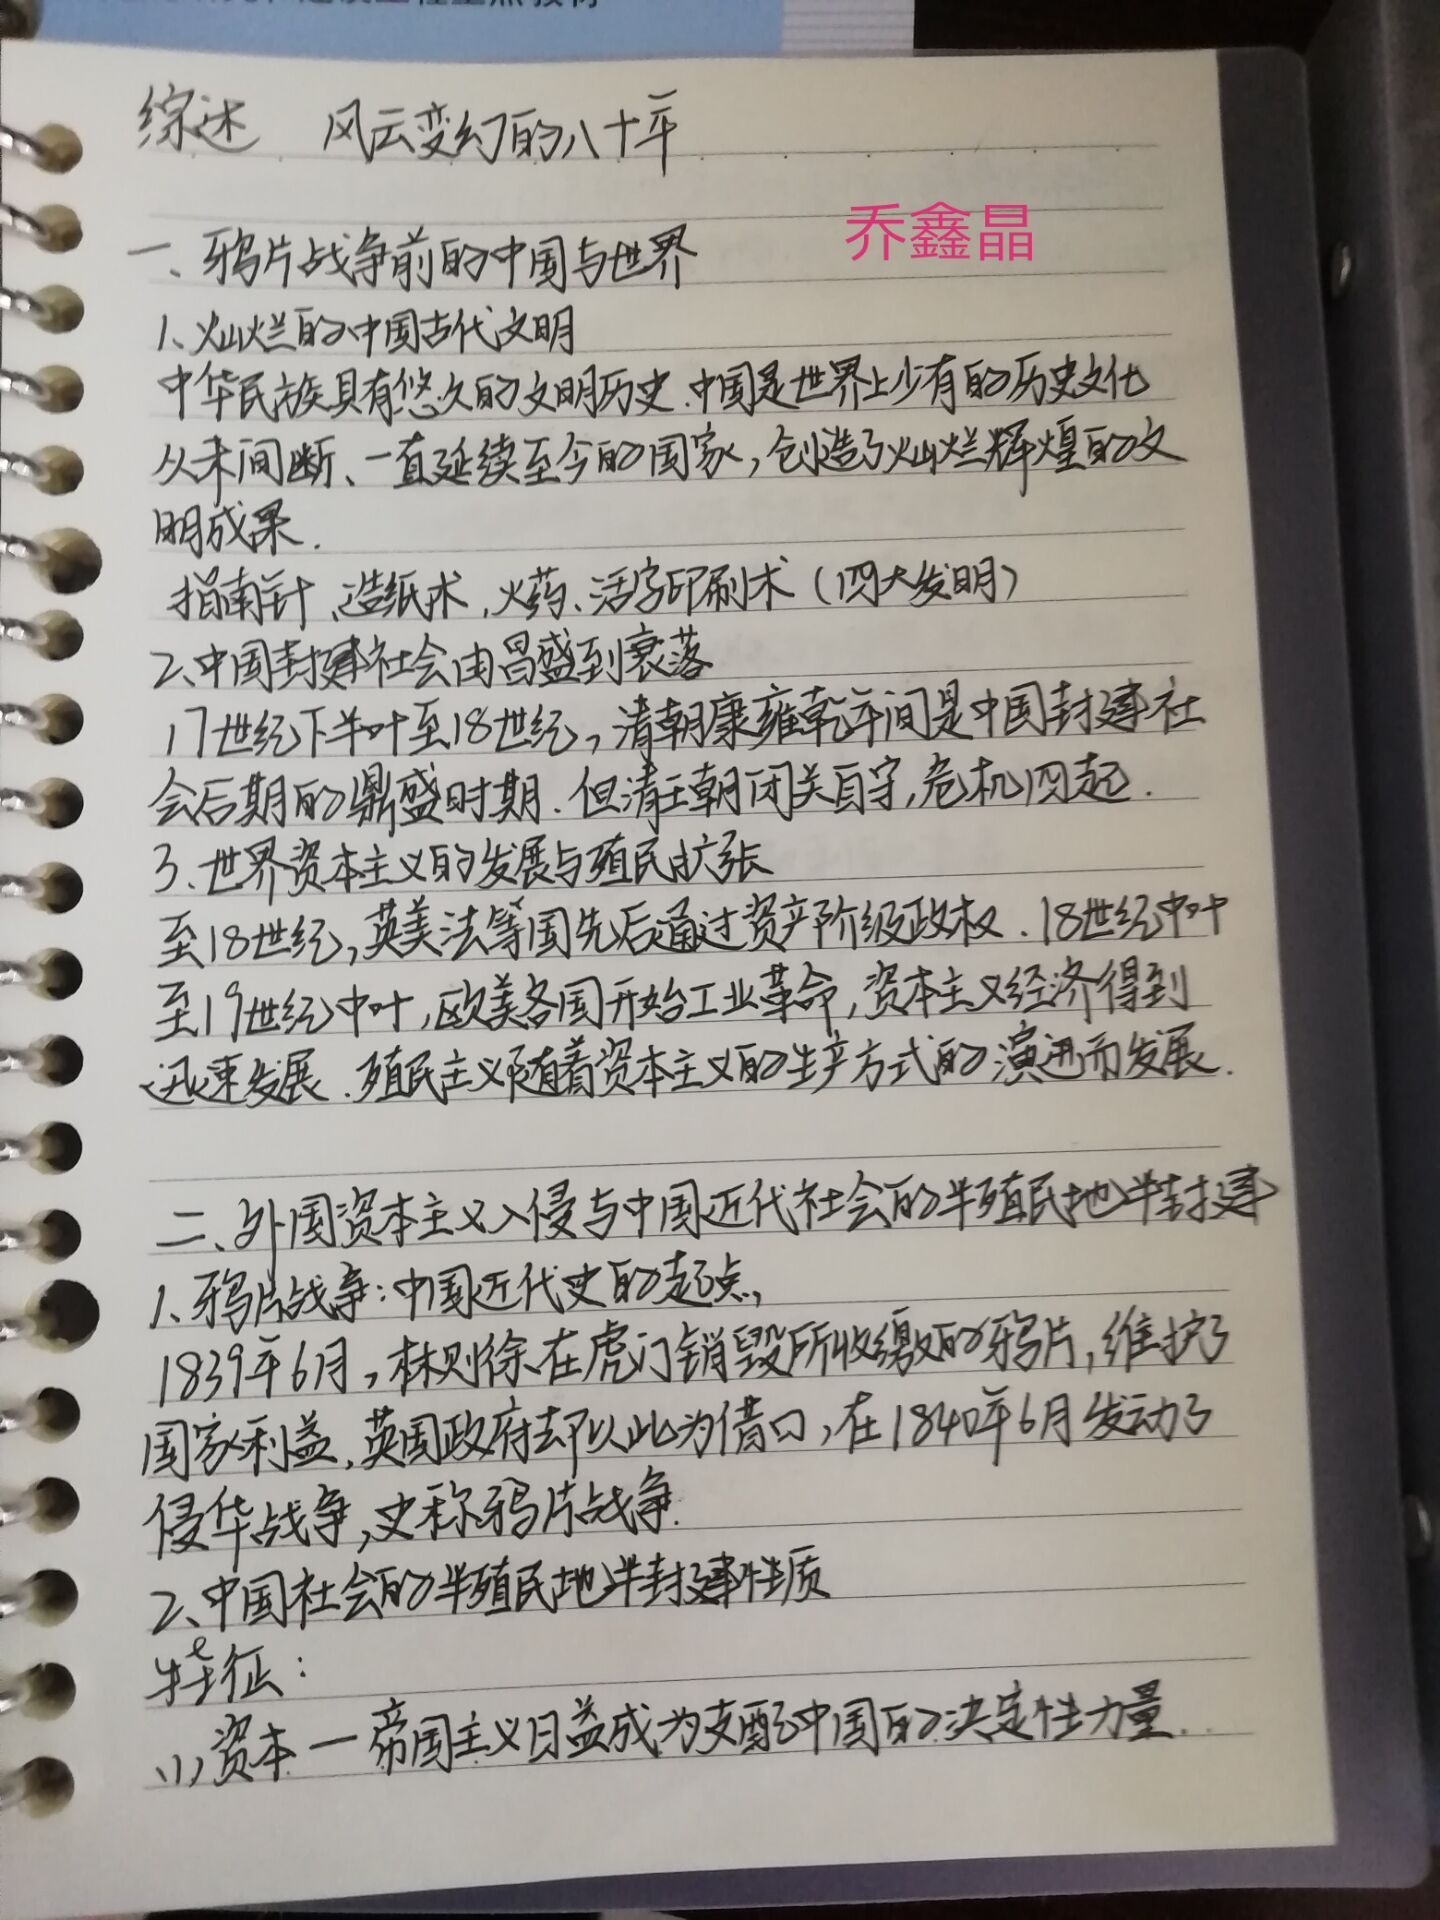 综述 风云变幻的八十年
乔鑫晶
一、鸦片战争前的中国与世界
1、灿烂的中国古代文明
中华民族具有悠久的文明历史.中国是世界上少有的历史文化
从未间断、一直延续至今的国家,创造了灿烂辉煌的文
明成果.
指南针、造纸术、火药、活字印刷术(四大发明)
2、中国封建社会由昌盛到衰落
17世纪下半叶至18世纪,清朝康雍乾年间是中国封建社
会后期的鼎盛时期.但清王朝闭关自守,危机四起.
3、世界资本主义的发展与殖民扩张
至18世纪,英美法等国先后通过资产阶级政权.18世纪中叶
至19世纪中叶,欧美各国开始工业革命,资本主义经济得到
迅速发展.殖民主义随着资本主义的生产方式的演进而发展.
二、外国资本主义入侵与中国近代社会的半殖民地半封建
1、鸦片战争:中国近代史的起点,
1839年6月,林则徐在虎门销毁所收缴的鸦片,维护了
国家利益,英国政府却以此为借口,在1840年6月发动了
侵华战争,史称鸦片战争.
2、中国社会的半殖民地半封建性质
特征:
(1)资本一帝国主义日益成为支配中国的决定性力量.